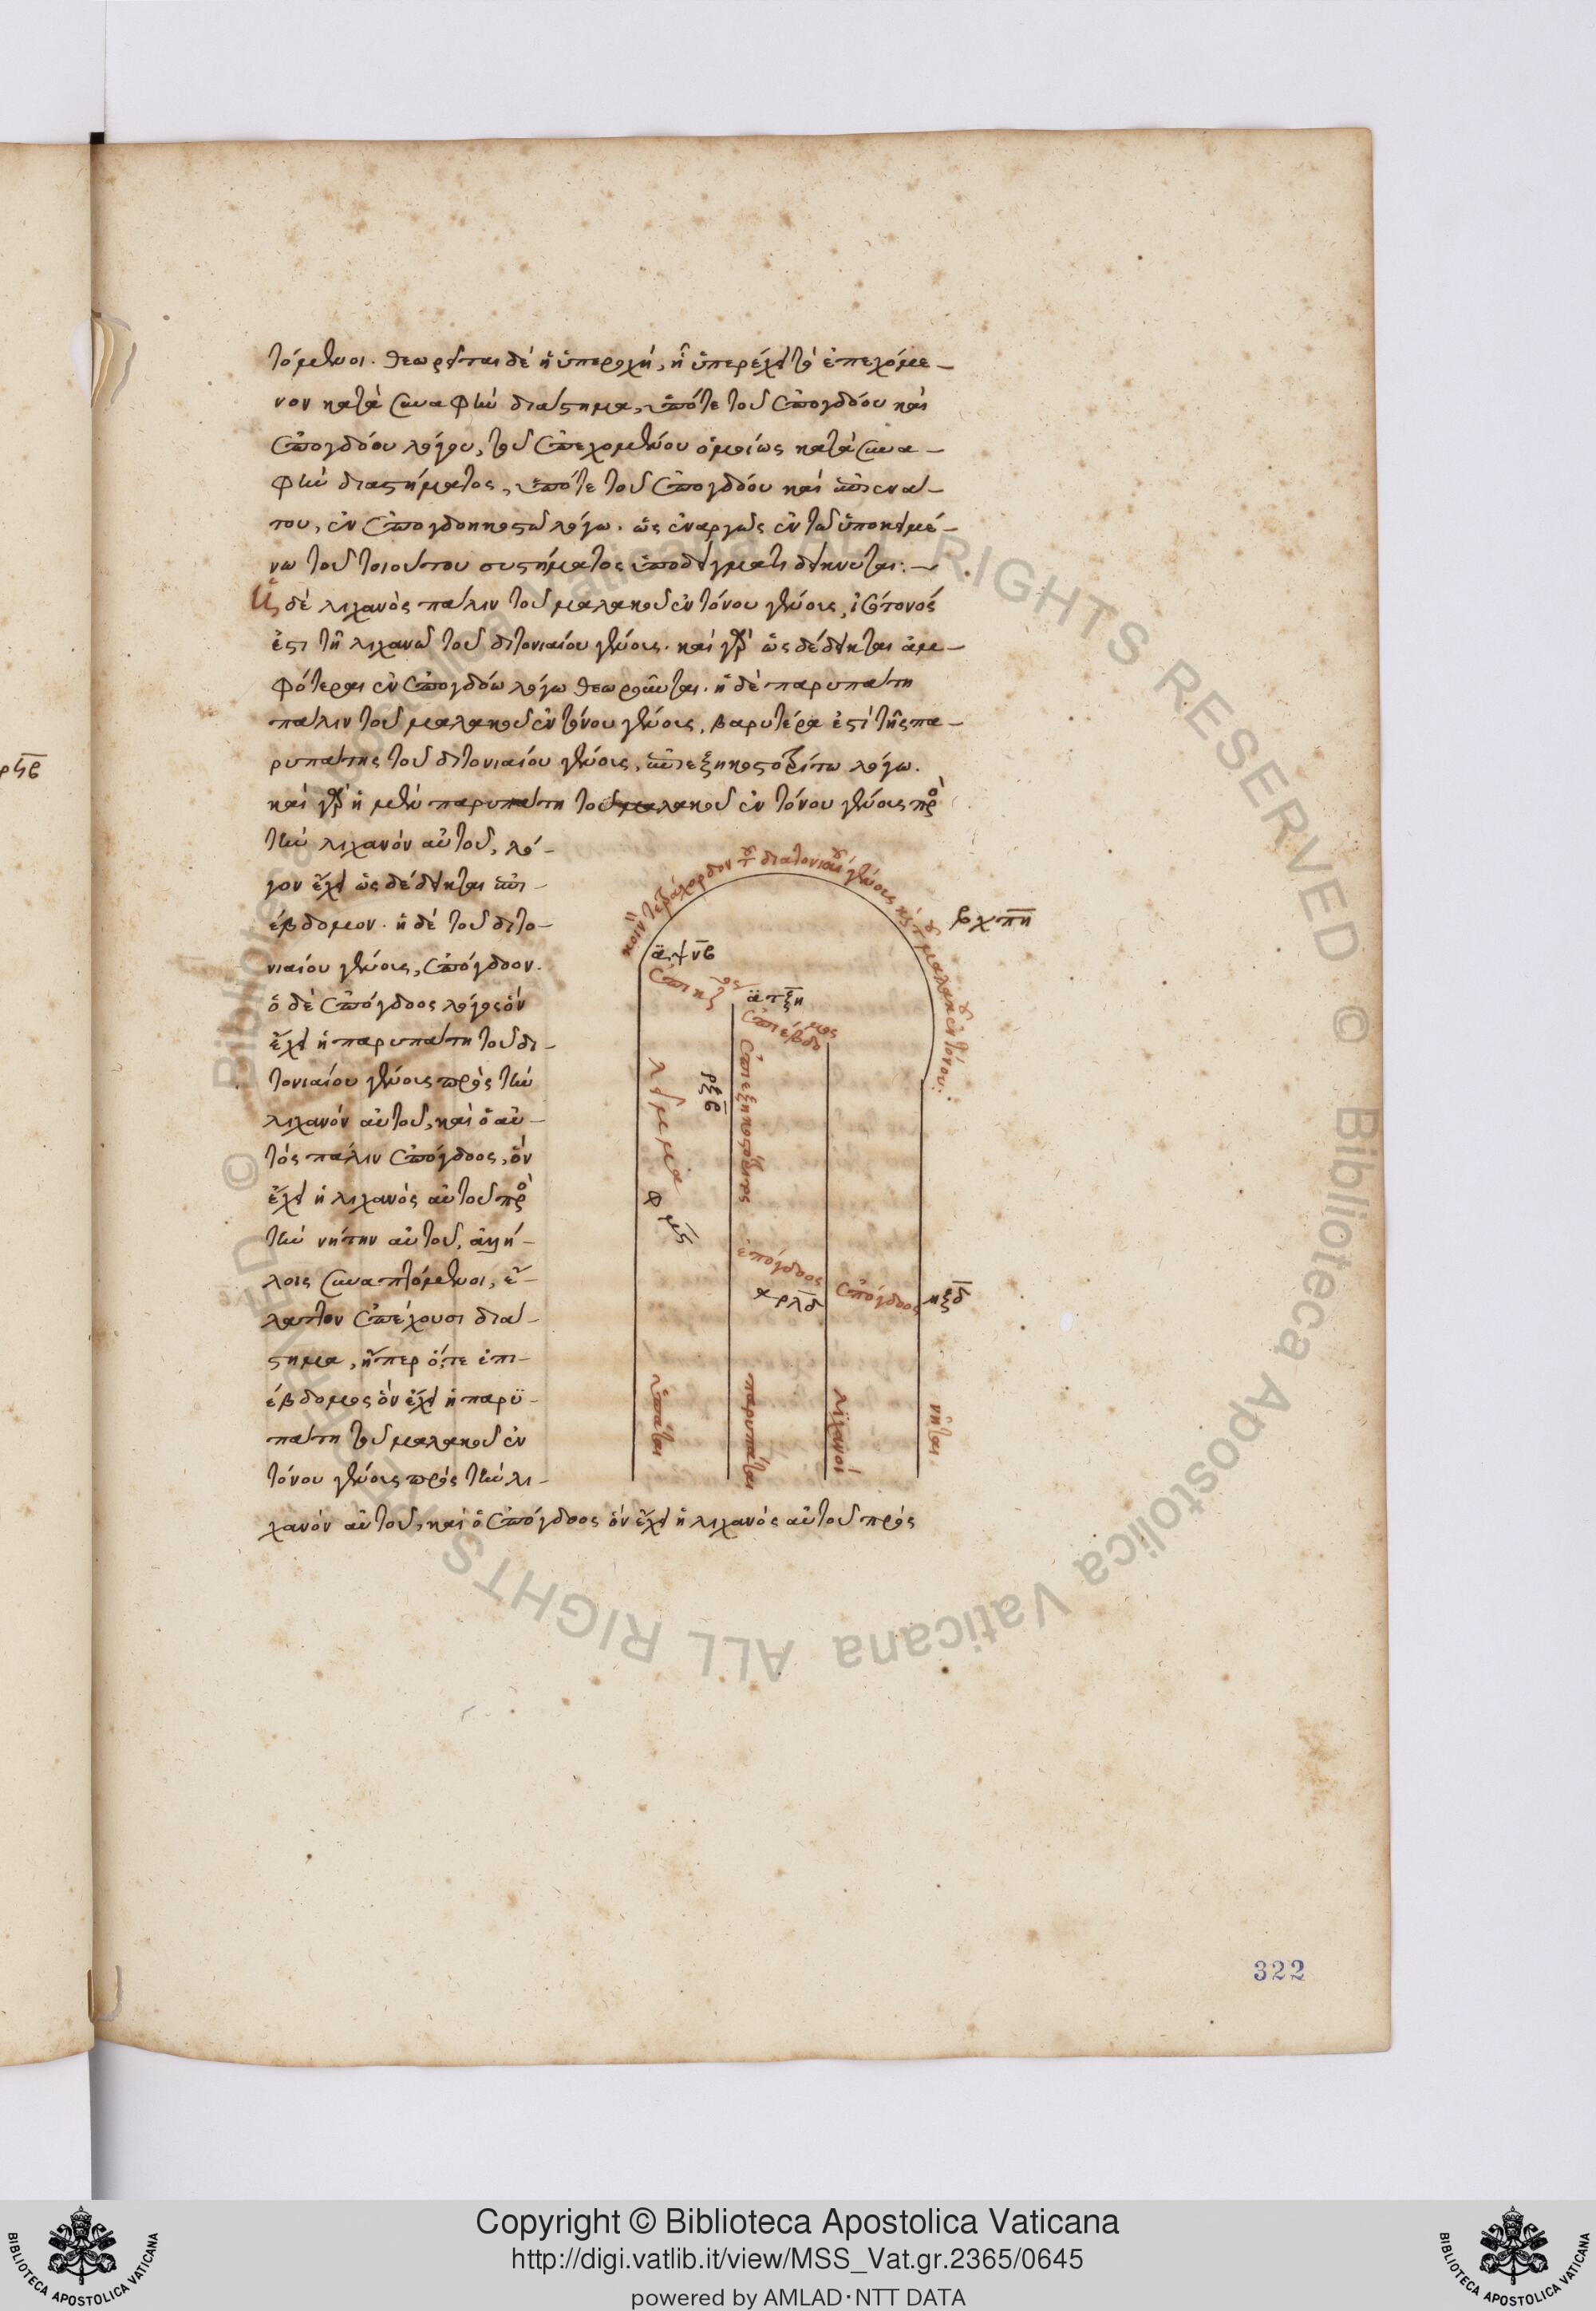 τόμενοι. θεωρεῖται δὲ ἡ ὑπεροχή, ᾗ ὑπερέχει τὸ ἐπεχόμε-
νον κατὰ συναφὴν διάστημα, ὑπότε τοῦ ἐπογδόου καὶ
ἐπογδόου λόγου, τοῦ ἐπεχομένου ὁμοίως κατὰ συνα-
φὴν διαστήματος, ὑπότε τοῦ ἐπογδόου καὶ ἐπιενά-
του, ἐν ἐπογδοηκοστῷ λόγῳ. ὡς ἐναργῶς ἐν τῷ ὑποκειμέ-
νῳ τοῦ τοιούτου συστήματος ὑποδείγματι δείκνυται:-
Ἡ δὲ λιχανὸς πάλιν τοῦ μαλακοῦ ἐντόνου γένους, ἰσότονός
ἐστι τῇ λιχανῷ τοῦ διτονιαίου γένους. καὶ γὰρ ὡς δέδεικται ἀμ-
φότεραι ἐν ἐπογδόῳ λόγῳ θεωροῦνται. ἡ δὲ παρυπάτη
πάλιν τοῦ μαλακοῦ ἐντόνου γένους, βαρυτέρα ἐστὶ τῆς πα-
ρυπάτης τοῦ διτονιαίου γένους, ἐπιεξηκοστοτρίτῳ λόγῳ.
καὶ γὰρ ἡ μὲν παρυπάτη τοῦ μαλακοῦ ἐντόνου γένους πρὸς
τὴν λιχανὸν αὐτοῦ, λό-
γον ἔχει ὡς δέδεικται ἐπι-
έβδομον. ἡ δὲ τοῦ διτο-
νιαίου γένους, ἐπόγδοον.
ὁ δὲ ἐπόγδοος λόγος ὃν
ἔχει ἡ παρυπάτη τοῦ δι-
τονιαίου γένους πρὸς τὴν
λιχανὸν αὐτοῦ, καὶ ὁ αὐ-
τὸς πάλιν ἐπόγδοος, ὃν
ἔχει ἡ λιχανὸς αὐτοῦ πρὸς
τὴν νήτην αὐτοῦ, ἀλλή-
λοις συναπτόμενοι, ἔ-
λαττον ἐπέχουσι διά-
στημα, ἤπερ ὅ,τε ἐπι-
έβδομος ὃν ἔχει ἡ παρϋ-
πάτη τοῦ μαλακοῦ ἐν
τόνου γένους πρὸς τὴν λι-
χανὸν αὐτοῦ, καὶ ὁ ἐπόγδοος ὃν ἔχει ἡ λιχανὸς αὐτοῦ πρὸς
τετράχορδον τοῦ διατονιαίου γένους κ τοῦ μαλακοῦ ἐντόνου:
βχπη
αψνβ
ἐπικζος
ατξη
ἐπιέβδομος
λεῖμμα
ρξβ
ἐπιεξηκοστότριτος
μς
ἐπόγδοος
ρλδ
ἐπόγδοος
κξδ
ὑπάται
παρυπάται
λιχανοί
νῆται
322
Copyright © Biblioteca Apostolica Vaticana
http://digi.vatlib.it/view/MSS_Vat.gr.2365/0645
powered by AMLAD·NTT DATA
BIBLIOTECA APOSTOLICA VATICANA
BIBLIOTECA APOSTOLICA VATICANA
© Biblioteca Apostolica Vaticana ALL RIGHTS RESERVED